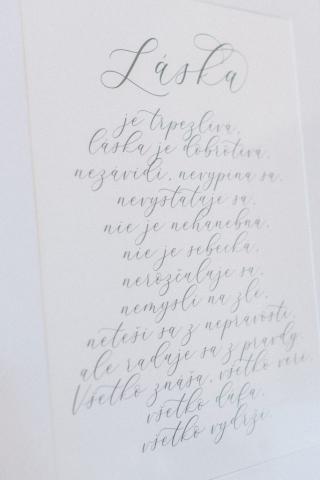 Láska
je trpezlivá,
láska je dobrotivá,
nezávidí, nevypína sa,
nevystatuje sa,
nie je nehanebná,
nie je sebecká,
nerozčuľuje sa,
nemyslí na zlé,
neteší sa z neprávosti,
ale raduje sa z pravdy.
Všetko znáša, všetko verí,
všetko dúfa,
všetko vydrží.